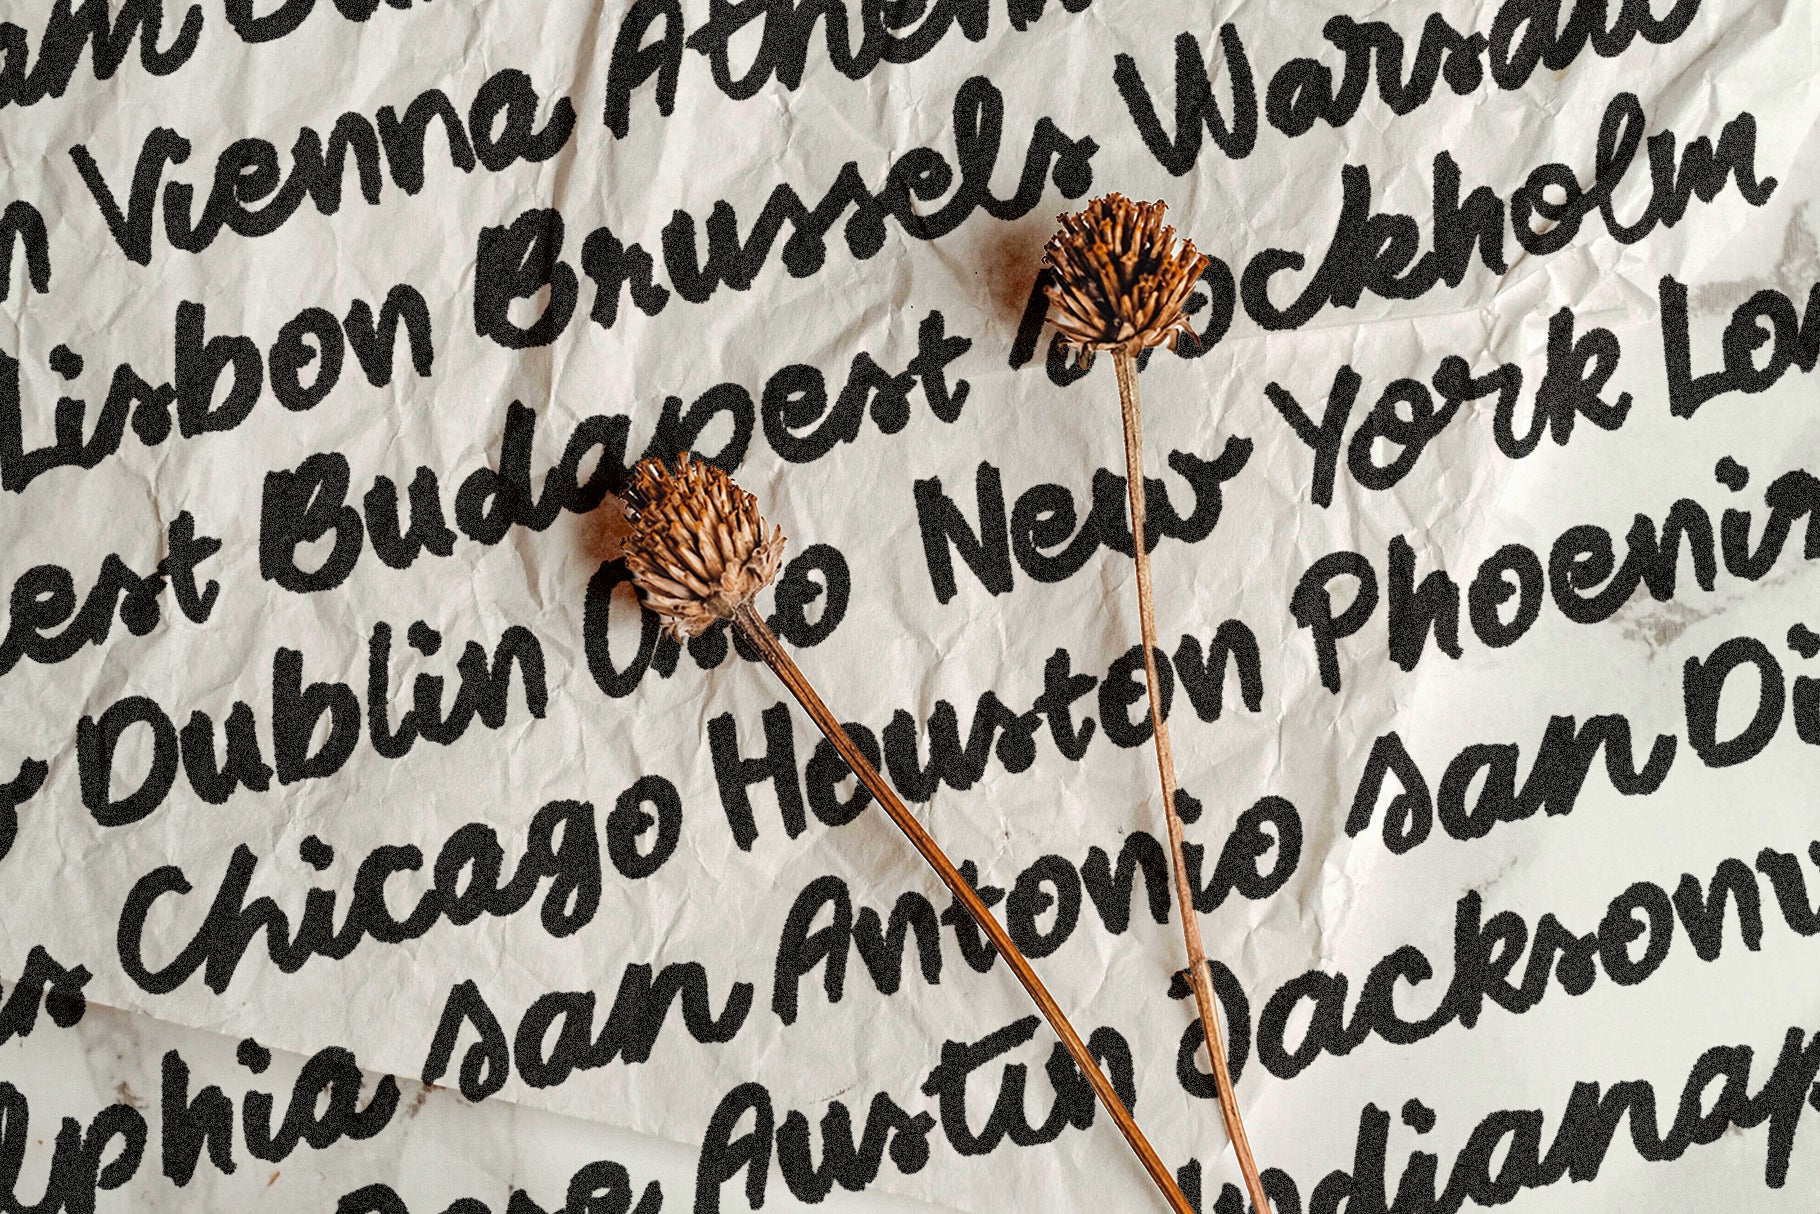 am
Vienna Athen
Lisbon Brussels Warsaw
est Budapest Stockholm
Dublin Oslo New York Lon
s Chicago Houston Phoenix
lphia san Antonio san Di
ose Austin Jacksonv
Indianap